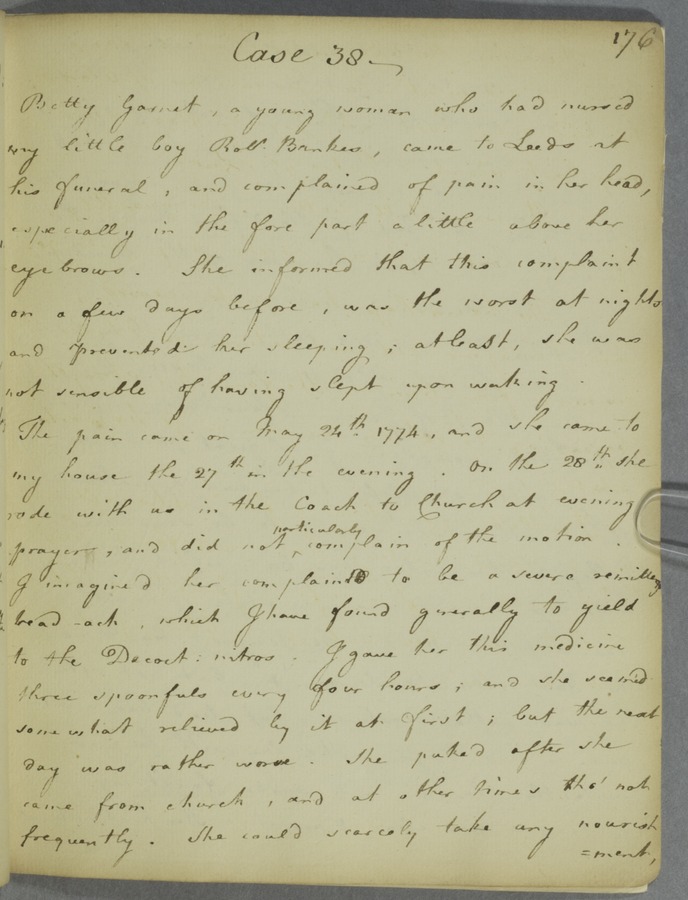 176
Case 38
Betty Garnet, a young woman who had nursed
my little boy Robt. Bankes, came to Leeds at
his funeral, and complained of pain in her head,
especially in the fore part a little above her
eye brows. She informed that this complaint
on a few days before, was the worst at nights
and prevented her sleeping; at least, she was
not sensible of having slept upon waking.
The pain came on May 24th. 1774, and she came to
my house the 27th in the evening. On the 28th. she
rode with us in the Coach to Church at evening
particularly
prayers, and did not complain of the motion.
I imagined her complaint to be a severe remitting
head-ach, which I have found generally to yield
to the Decoct: nitros. I gave her this medicine
three spoonfuls every four hours; and she seemed
somewhat relieved by it at first; but the next
day was rather worse. She puked after she
came from church, and at other times tho' not
frequently. She could scarcely take any nourish
=ment,